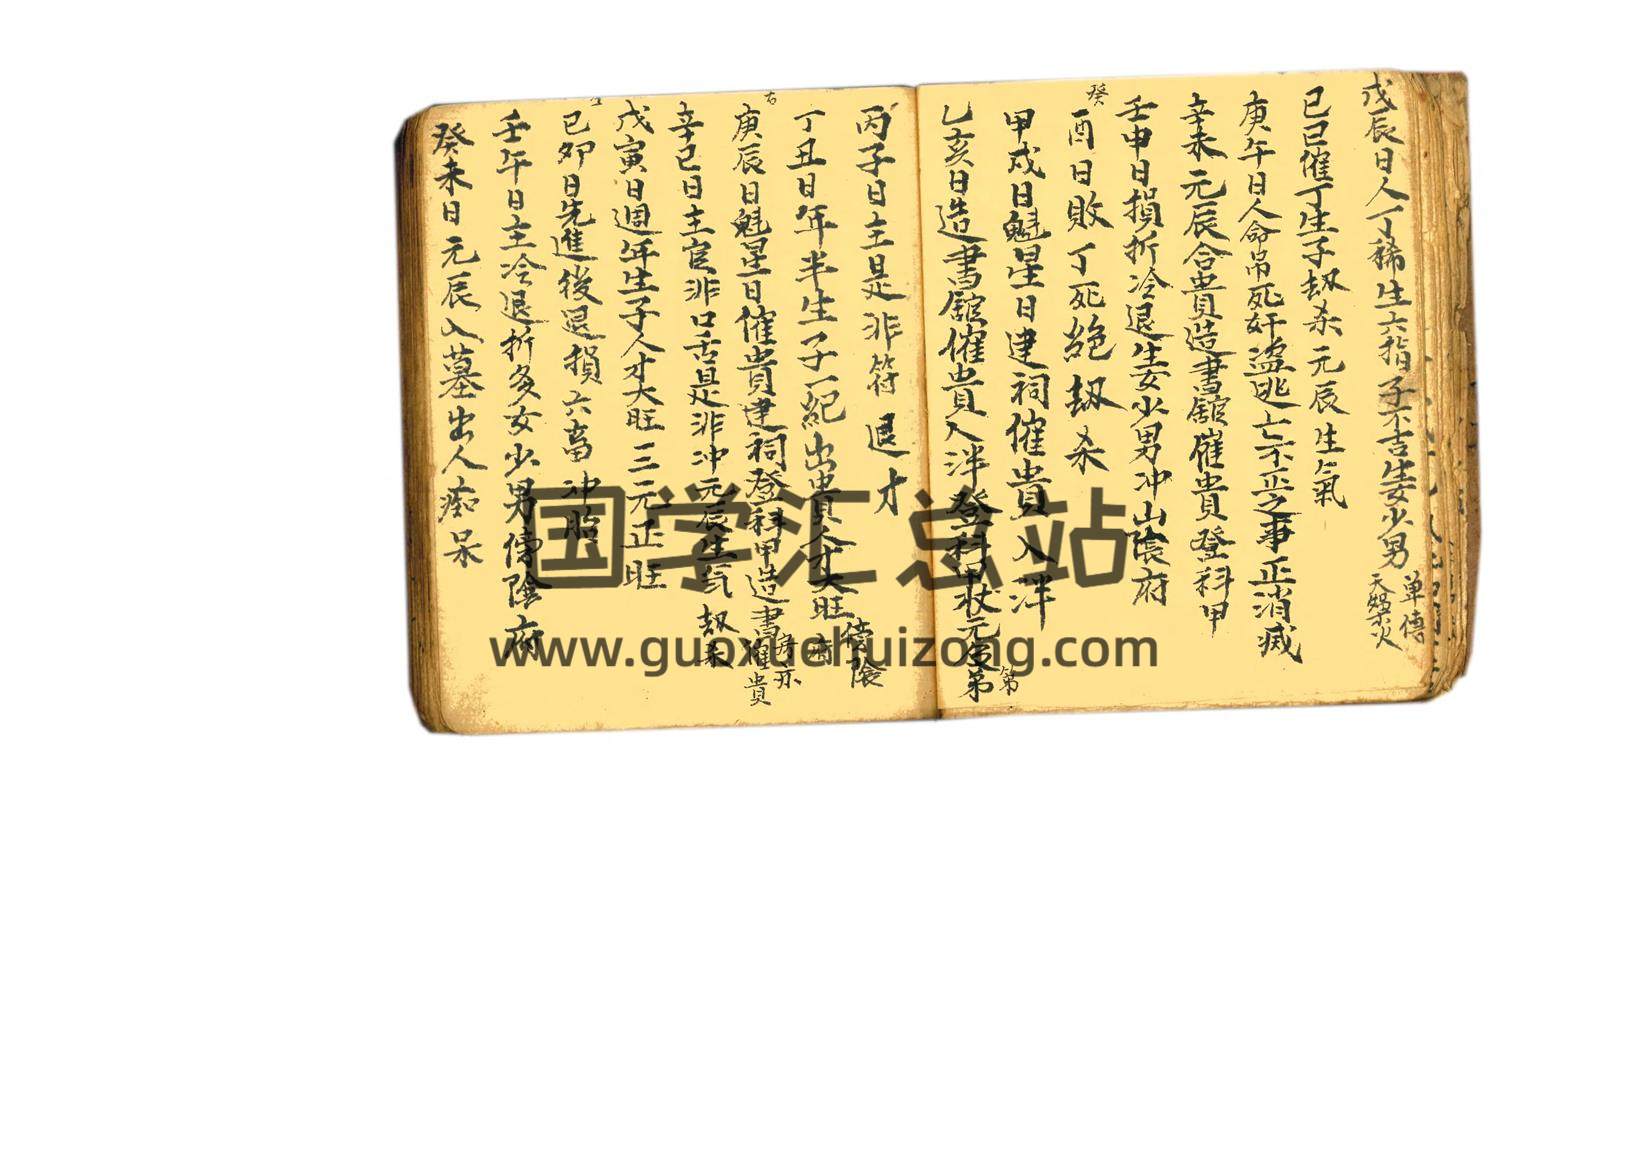 戊辰日人丁稀生六指子不吉生女少男
单傳
天盤火
己巳催丁生子劫杀元辰生氣
庚午日人命吊死奸盗逃亡不正之事正消滅
辛未元辰合贵造書舘催貴登科甲
壬申日損折冷退生女少男冲山陰府
癸
酉日敗丁死絕劫杀
甲戌日魁星日建祠催貴入泮
乙亥日造書舘催貴入泮登科甲状元及第
第
丙子日主是非符退才
丁丑日年半生子一紀出貴人才大旺傍陰府
庚辰日魁星日催貴建祠登科甲造書催貴
辛巳日主官非口舌是非冲元辰生气劫杀
戊寅日週年生子人才大旺三元正旺
己卯日先進後退損六畜冲胎
壬午日主冷退折多女少男傍陰府
癸未日元辰入墓出人痴呆
国学汇总站
www.guoxuehuizong.com